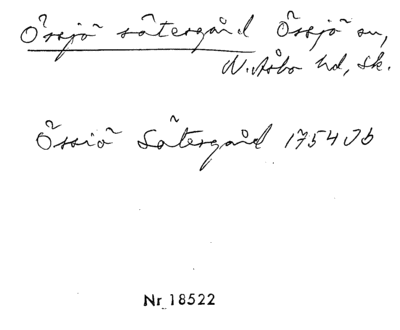 Össjö sätergård Össjö sn,
N. Åsbo hd, Sk.
Össiö Sätergård 1754 Jb
Nr 18522